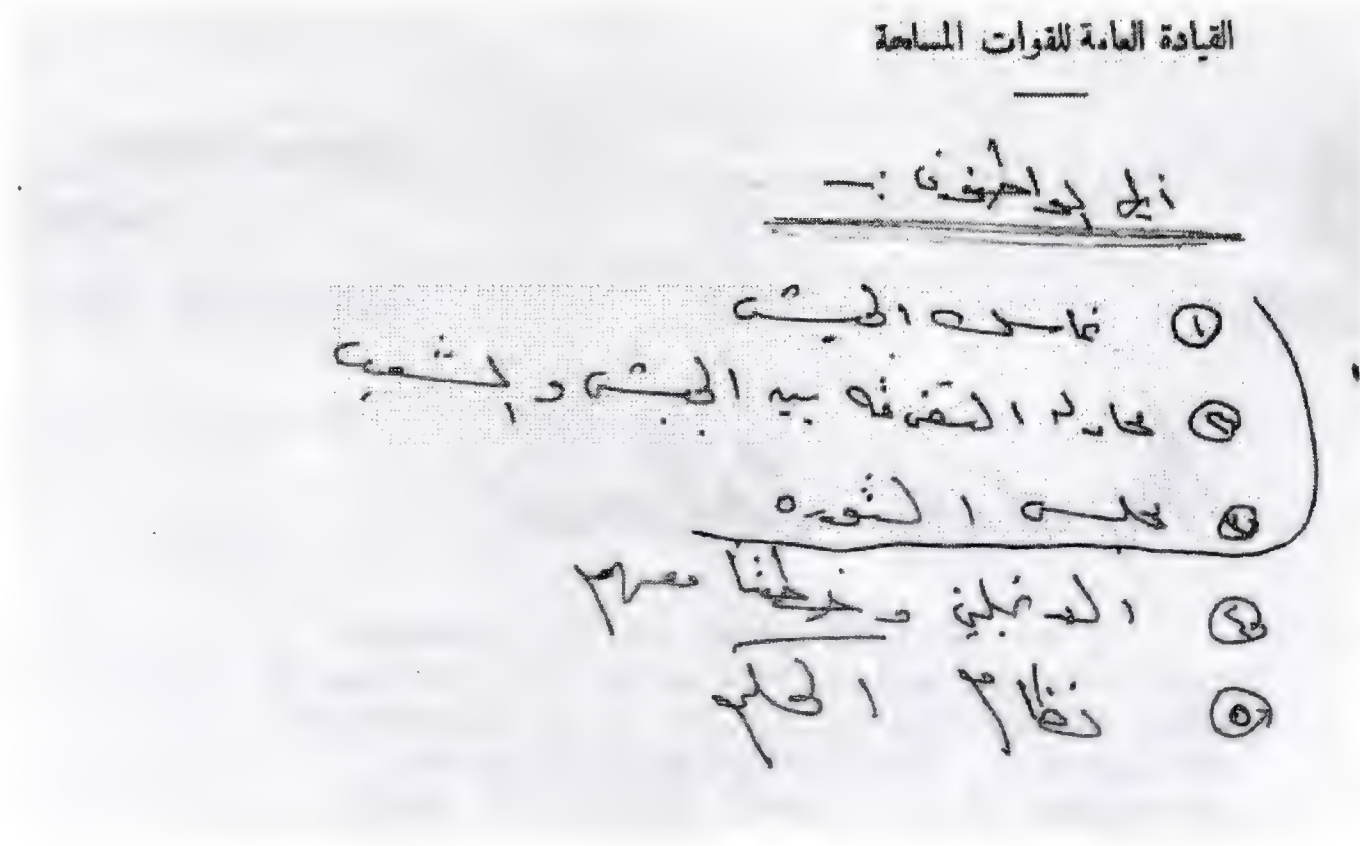 القيادة العامة للقوات المسلحة
أيها المواطنون :-
① تماسك الجيش
② محاولة التفرقة بين الجيش والشعب
③ مجلس الثورة
④ الانجليز وخطتنا معهم
⑤ نظام الحكم